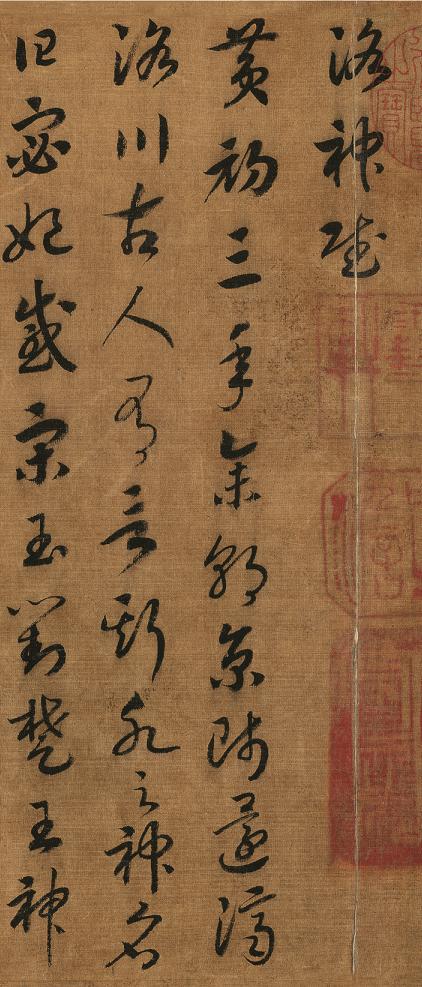 洛神賦
黄初三年余朝京師還濟
洛川古人有言斯水之神名
曰宓妃感宋玉對楚王神